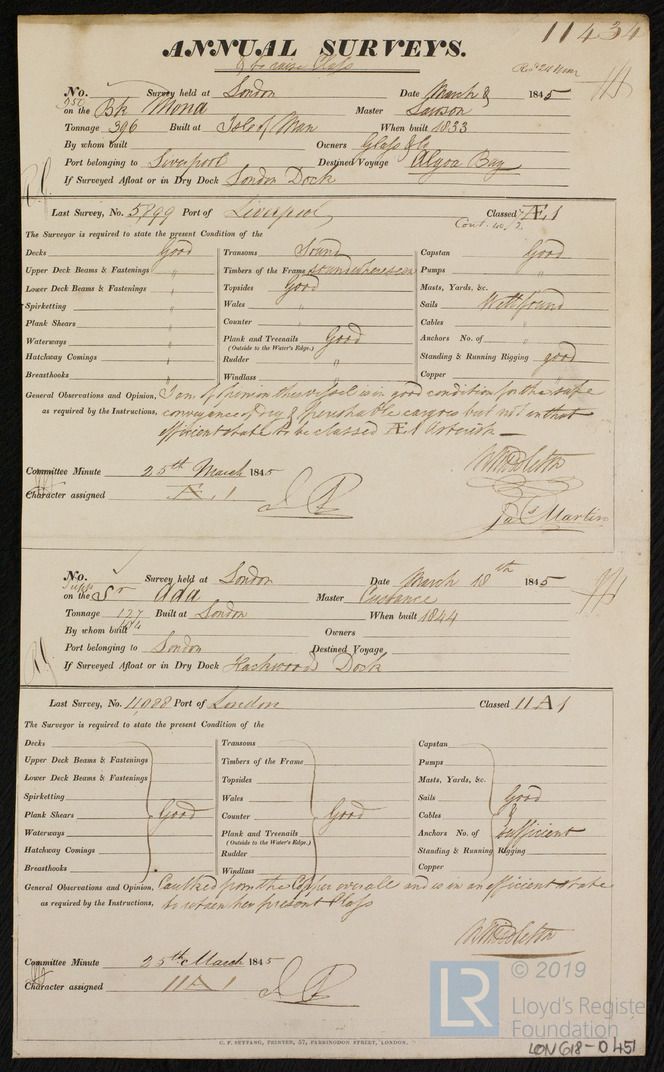 11434
ANNUAL SURVEYS.
to raise Class
No. Survey held at London Date March 8 1845
on the Bk Mona Master Lawson
Tonnage 396 Built at Isle of Man When built 1833
By whom built Owners Glass & Co
Port belonging to Liverpool Destined Voyage Algoa Bay
If Surveyed Afloat or in Dry Dock London Dock
Last Survey, No. 5899 Port of Liverpool Classed Æ 1
Cont.
The Surveyor is required to state the present Condition of the
Decks Good Transoms Sound Capstan Good
Upper Deck Beams & Fastenings " Timbers of the Frame Sound where seen Pumps "
Lower Deck Beams & Fastenings " Topsides Good Masts, Yards, &c.
Spirketting " Wales " Sails Well found
Plank Shears " Counter " Cables "
Waterways " Plank and Treenails Good Anchors No. of "
(Outside to the Water's Edge.)
Hatchway Comings " Rudder " Standing & Running Rigging good
Breasthooks " Windlass " Copper "
General Observations and Opinion, I am of opinion this vessel is in good condition for the safe
as required by the Instructions, conveyance of Dry & perishable cargoes but not in that
efficient state to be classed Æ 1 Asterisk
W Middleton
Committee Minute 25th March 1845
Character assigned Æ 1
Jas Martin
No. Survey held at London Date March 18th 1845
on the Sr Ada Master Custance
Tonnage 127 Built at London When built 1844
By whom built Owners
Port belonging to London Destined Voyage
If Surveyed Afloat or in Dry Dock Dock
Last Survey, No. 11,028 Port of London Classed 11 A 1
The Surveyor is required to state the present Condition of the
Decks Transoms Capstan
Upper Deck Beams & Fastenings Timbers of the Frame Pumps
Lower Deck Beams & Fastenings Topsides Masts, Yards, &c.
Spirketting Wales Sails Good
Plank Shears Good Counter Good Cables &
Waterways Plank and Treenails Anchors No. of Sufficient
(Outside to the Water's Edge.)
Hatchway Comings Rudder Standing & Running Rigging
Breasthooks Windlass Copper
General Observations and Opinion, Caulked from the Copper over all and is in an efficient state
as required by the Instructions, to retain her present Class
W Middleton
Committee Minute 25th March 1845
Character assigned 11 A 1
C. F. SEYFANG, PRINTER, 57, FARRINGDON STREET, LONDON.
LR
© 2019
Lloyd's Register
Foundation
LON618-0451